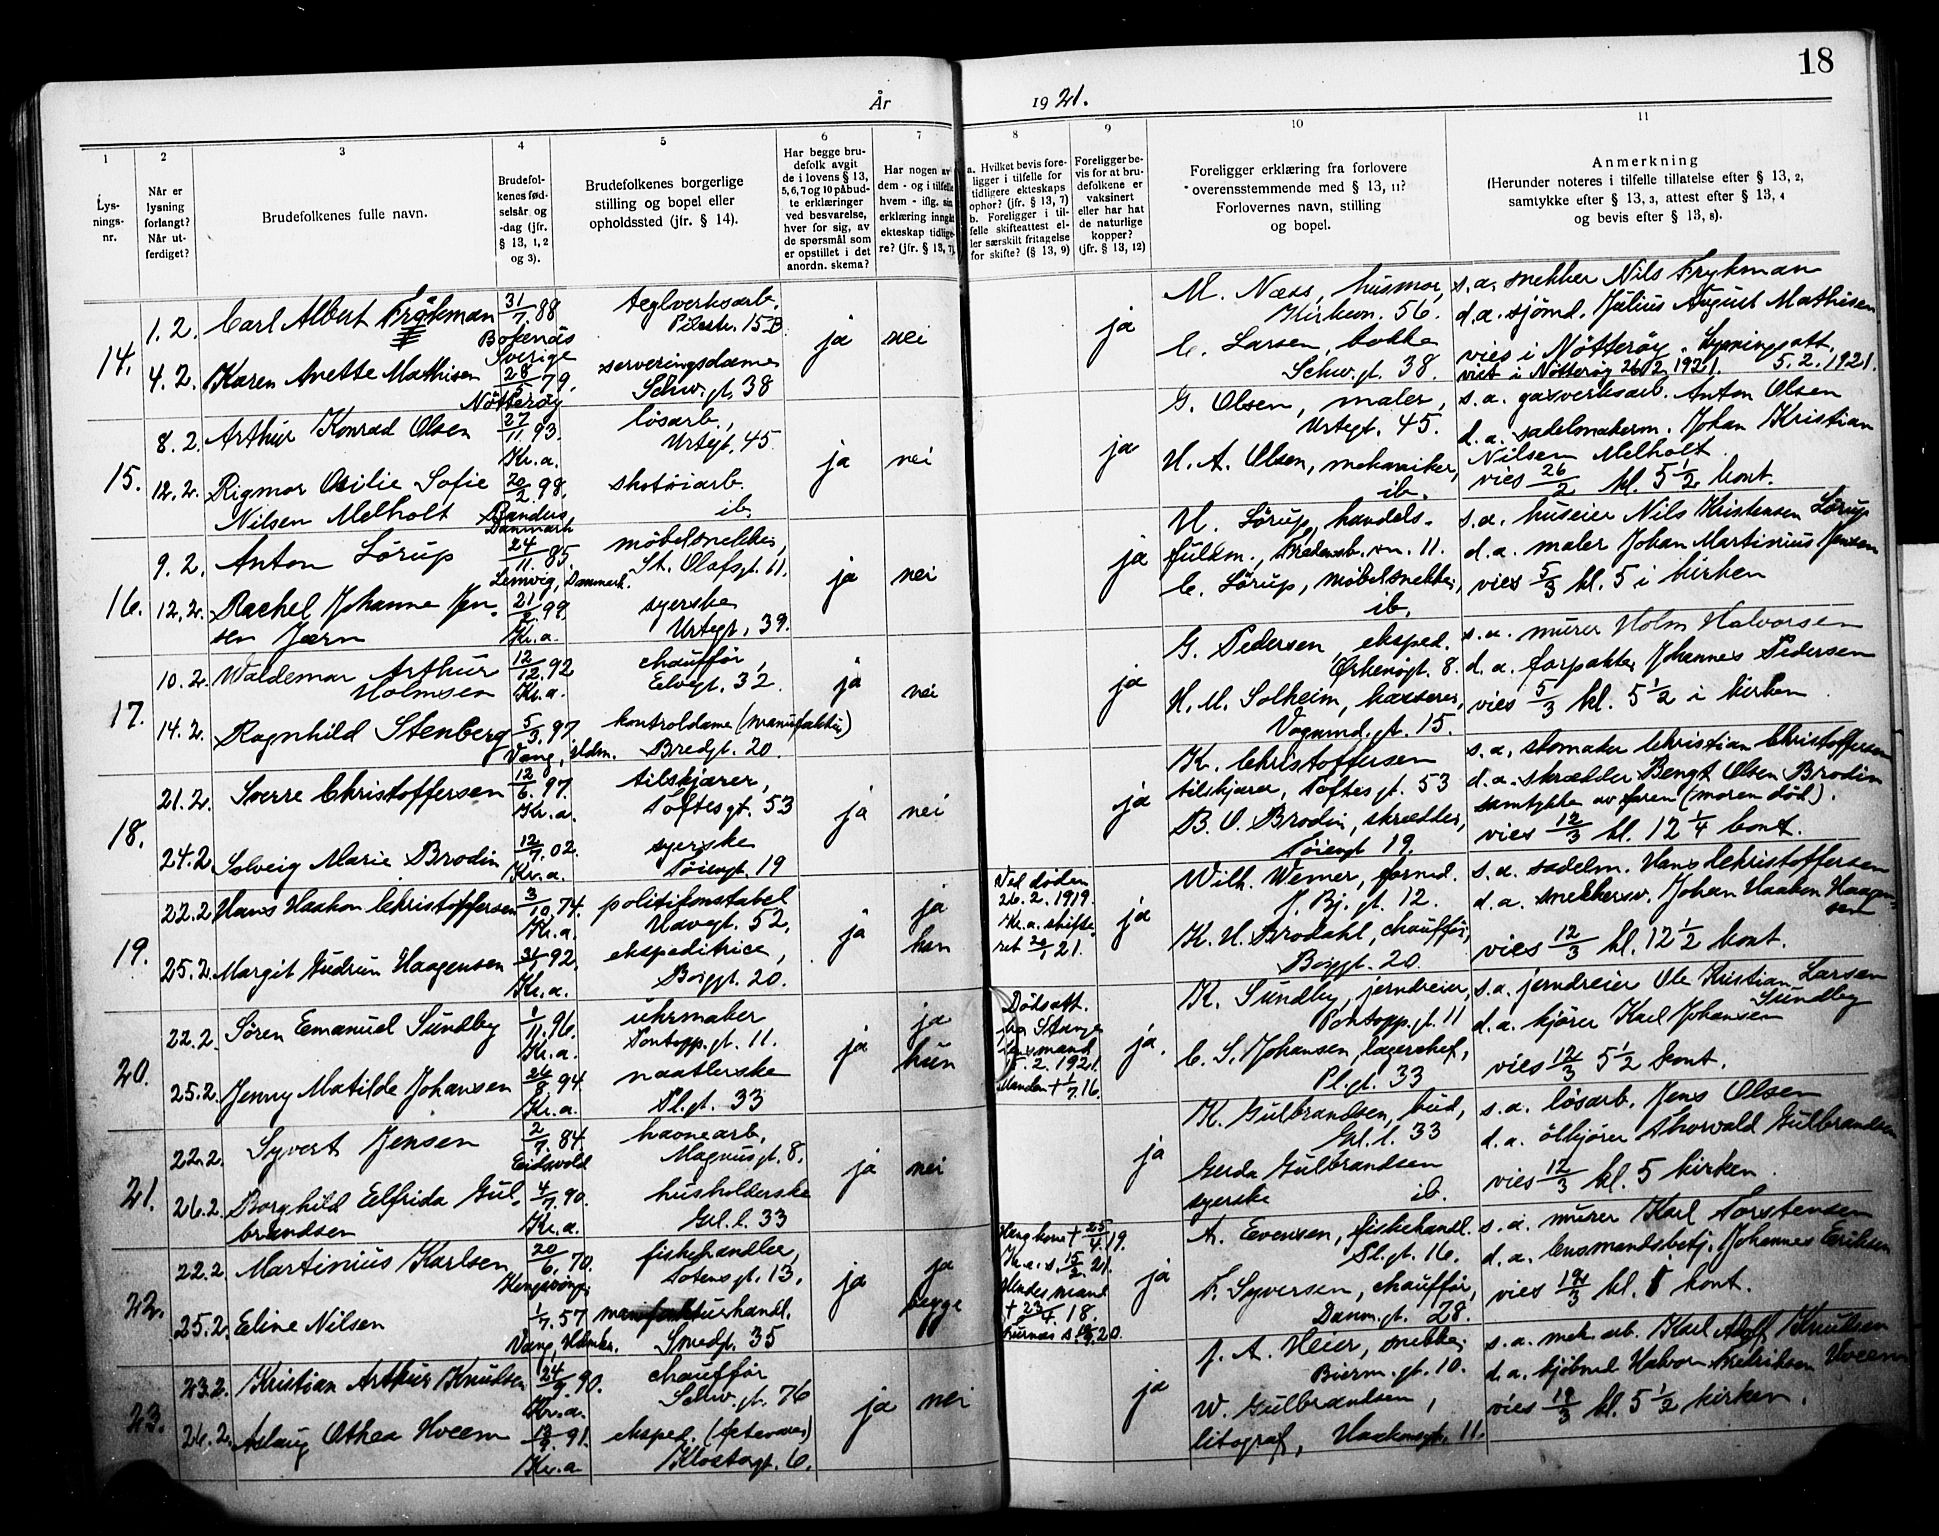 18
År 1921.
1 2 3 4 5 6 7 8 9 10 11
Lysnings-
nr.
Når er
lysning
forlangt?
Når ut-
ferdiget?
Brudefolkenes fulle navn.
Brudefol-
kenes fød-
selsår og
-dag (jfr.
§ 13, 1, 2
og 3).
Brudefolkenes borgerlige
stilling og bopel eller
opholdssted (jfr. § 14).
Har begge bru-
defolk avgit
de i lovens § 13,
5, 6, 7 og 10 påbud-
te erklæringer
ved besvarelse,
hver for sig, av
de spørsmål som
er opstillet i det
anordn. skema?
Har nogen av
dem - og i tilfelle
hvem - iflg. sin
erklæring inngått
ekteskap tidlige-
re? (jfr. § 13, 7).
a. Hvilket bevis fore-
ligger i tilfelle for
tidligere ekteskaps
ophør? (jfr. § 13, 7)
b. Foreligger i til-
felle skifteattest el-
ler særskilt fritagelse
for skifte? (§ 13, 9)
Foreligger be-
vis for at bru-
defolkene er
vaksinert
eller har hat
de naturlige
kopper?
(jfr. § 13, 12)
Foreligger erklæring fra forlovere
overensstemmende med § 13, 11?
Forlovernes navn, stilling
og bopel.
Anmerkning
(Herunder noteres i tilfelle tillatelse efter § 13, 2,
samtykke efter § 13, 3, attest efter § 13, 4
og bevis efter § 13, 8).
14.
1.2. Carl Albert Frykman 31/7.88 Bokenäs Sverige teglverksarb. Pilestr. 15B
4.2. Karen Anette Mathisen 28/5 79. Nøtterøy serveringsdame Schw.gt. 38
ja nei ja
M. Næss, husmor,
Kirkevn. 56.
C. Larsen, kokke
Schw.gt. 38.
s.a. snekker Nils Frykman
d.a. sjømd. Julius August Mathisen
vies i Nøtterøy. Lysningsatt.
viet i Nøtterøy 26/2 1921. 5.2.1921.
15.
8.2. Arthur Konrad Olsen 27/11 93. Kr.a. løsarb., Urtegt. 45
12.2. Rigmor Ottilie Sofie
Nilsen Melholt 20/2 98. Randers, Danmark skotøiarb. ib.
ja nei ja
G. Olsen, maler,
Urtegt. 45.
H. A. Olsen, mekaniker,
ib.
s.a. gasverksarb. Anton Olsen
d.a. sadelmakerm. Johan Kristian
Nilsen Melholt
vies 26/2 kl. 5 1/2 kont.
16.
9.2. Anton Lörup 24/11. 85. Lemvig, Danmark. møbelsnekker, St. Olafsgt. 11.
12.2. Rachel Johanne Jen-
sen Jærn 21/2.99. Kr.a. syerske Urtegt. 39.
ja nei ja
H. Lörup, handels-
fullm., vn. 11.
C. Lörup, møbelsnekker,
ib.
s.a. huseier Nils Kristensen Lörup
d.a. maler Johan Martinius Jensen
vies 5/3 kl. 5 i kirken
17.
10.2. Waldemar Arthur
Holmsen 12/12.92 Kr.a. chauffør, Eilvgt. 32.
14.2. Ragnhild Stenberg 5/3.97 Vang, Hdm. kontroldame (manufaktur) Bredgt. 20
ja nei ja
G. Pedersen, eksped.
Ørkenøgt. 8.
H. M. Solheim, kasserer,
Vogtmd.gt. 15.
s.a. murer Holm Halvorsen
d.a. forpakter Johannes Pedersen
vies 5/3 kl. 5 1/2 i kirken
18.
21.2. Sverre Christoffersen 12/6.97. Kr.a. tilskjærer, Toftesgt. 53
24.2. Solveig Marie Brodin 12/7.02. Kr.a. syerske Tøiengt. 19
ja nei ja
K. Christoffersen
tilskjærer, Toftesgt. 53
B. O. Brodin, skrædder,
Tøiengt 19.
s.a. skomaker Christian Christoffersen
d.a. skrædder Bengt Olsen Brodin
samtykke av faren (moren død).
vies 12/3 kl. 12 1/4 kont.
19.
22.2. Hans Haakon Christoffersen 3/10.74. Kr.a. politikonstabel Uravgt. 52.
25.2. Margit Gudrun Haagensen 31/1 92. Kr.a. ekspeditrice, Borggt. 20.
ja ja
han
Ved døden
26.2.1919.
Kr.a. skifte-
ret 20/1 21.
ja
Wilh. Werner, formd.
J. Bj. gt. 12.
K. H. Brodahl, chauffør,
Borggt. 20
s.a. sadelm. Hans Christoffersen
d.a. snekkersv. Johan Haaken Haagen-
sen
vies 12/3 kl. 12 1/2 kont.
20.
22.2. Sören Emanuel Sundby 1/11.96. Kr.a. uhrmaker Pontopp.gt. 11.
25.2. Jenny Matilde Johansen 26/8 94. Kr.a. naatlerske Pl.gt. 33
ja ja
hun
Dødsatt.
fra Stange
lensmand
.2.1921.
Manden + 1/7.16.
ja.
K. Sundby, jerndreier,
Pontopp.gt. 11
C. S. Johansen, lagerchef,
Pl.gt. 33
s.a. jerndreier Ole Kristian Larsen
Sundby
d.a. kjører Karl Johansen
vies 12/3 5 1/2 kont.
21.
22.2. Syvert Jensen 2/7. 84. Eidsvold havnearb., Magnusgt. 8.
26.2. Borghild Elfrida Gul-
brandsen 4/7.90. Kr.a. husholderske Grl.l. 33
ja nei ja
K. Gulbrandsen, bud,
Grl.l. 33
Gerda Gulbrandsen
syerske ib.
s.a. løsarb. Jens Olsen
d.a. ølkjører Thorvald Gulbrandsen
vies 12/3 kl. 5 kirken.
22.
22.2 Martinius Karlsen 20/6.70. Kongsvinger fiskehandler, Totensgt. 13.
25.2. Eline Nilsen 1/7.57 Vang, Hdmkr. manufakturhandl. Smedgt. 35
ja ja
begge
Hans kone + 25/4.19.
Kr.a. s. 15/2.21.
Hendes mand
+ 23/4. 18.
20.
ja
A. Evensen, fiskehandl.
Pl.gt. 16.
F. Syversen, chauffør,
Danm.gt. 28.
s.a. murer Karl Torstensen
d.a. lensmandsbetj. Johannes Eriksen
vies 19/3 kl. 1 kont.
23.
23.2. Kristian Arthur Knudsen 24/9.90. Kr.a. chauffør Schw.gt. 76
26.2. Aslaug Othea Hveem 13/3.91. Kr.a eksped. (fetevarer) Klostergt. 6.
ja nei ja
J. A. Heier, snekker,
Bierm.gt. 10.
W. Gulbrandsen,
litograf, Haakonsgt. 11.
s.a. mek. arb. Karl Adolf Knudsen
d.a. kjøbmd Halvor Fredriksen Hveem
vies 19/3 kl. 5 1/2 kirken.